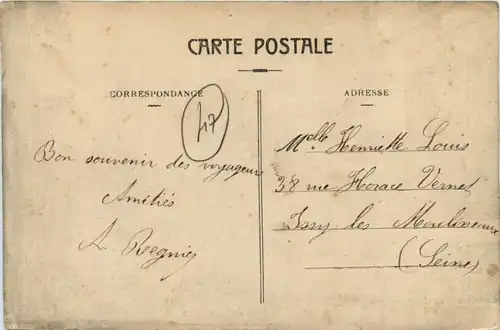 CARTE POSTALE
CORRESPONDANCE
ADRESSE
47
Bon souvenir des voyageurs
Amitiés
A. Regnier
Melle Henriette Louis
38 rue Horace Vernet
Issy les Moulineaux
(Seine)